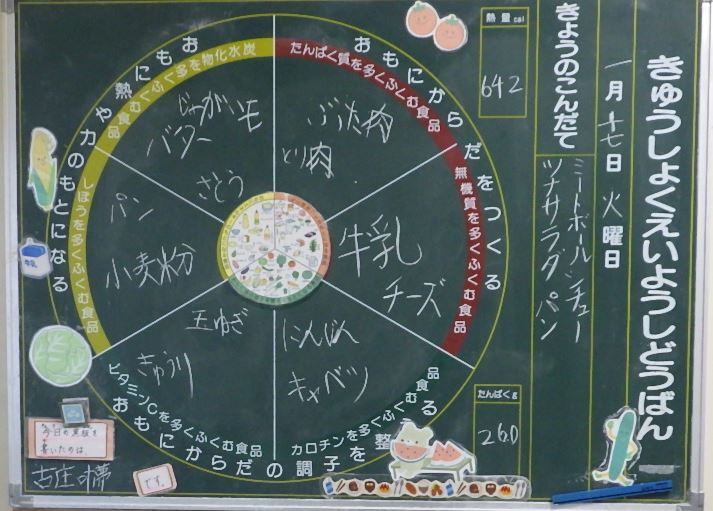 きゅうしょくえいようしどうばん
一月十七日火曜日
きょうのこんだて
ミートボールシチュー
ツナサラダ パン
熱量 cal
642
たんぱく g
26.0
おもにからだをつくる
たんぱく質を多くふくむ食品
ぶた肉
とり肉
無機質を多くふくむ食品
牛乳
チーズ
おもにからだの調子を整える
カロチンを多くふくむ食品
にんじん
キャベツ
ビタミンCを多くふくむ食品
玉ねぎ
きゅうり
おもに熱や力のもとになる
しぼうを多くふくむ食品
パン
小麦粉
炭水化物を多くふくむ食品
じゃがいも
バター
さとう
牛乳
今日の黒板を
書いたのは、
です。